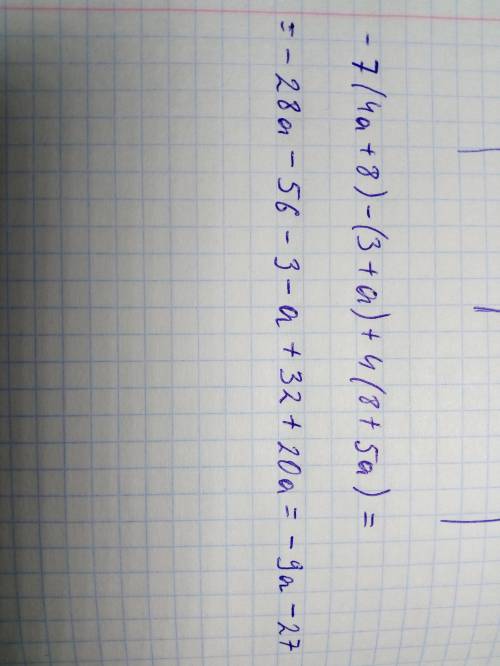 - 7(4a + 8) - (3 + a) + 4(8 + 5a) =
= - 28a - 56 - 3 - a + 32 + 20a = - 9a - 27